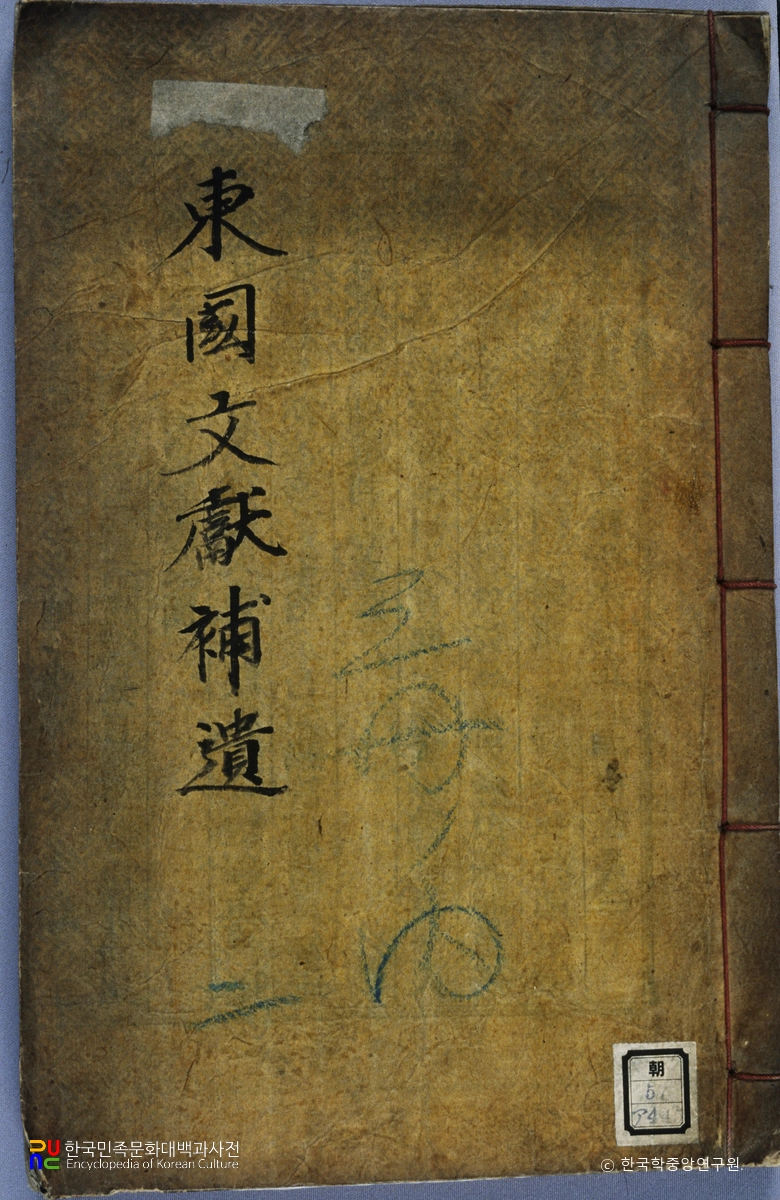 東國文獻補遺
二
朝
5
ア4
한국민족문화대백과사전
Encyclopedia of Korean Culture
© 한국학중앙연구원